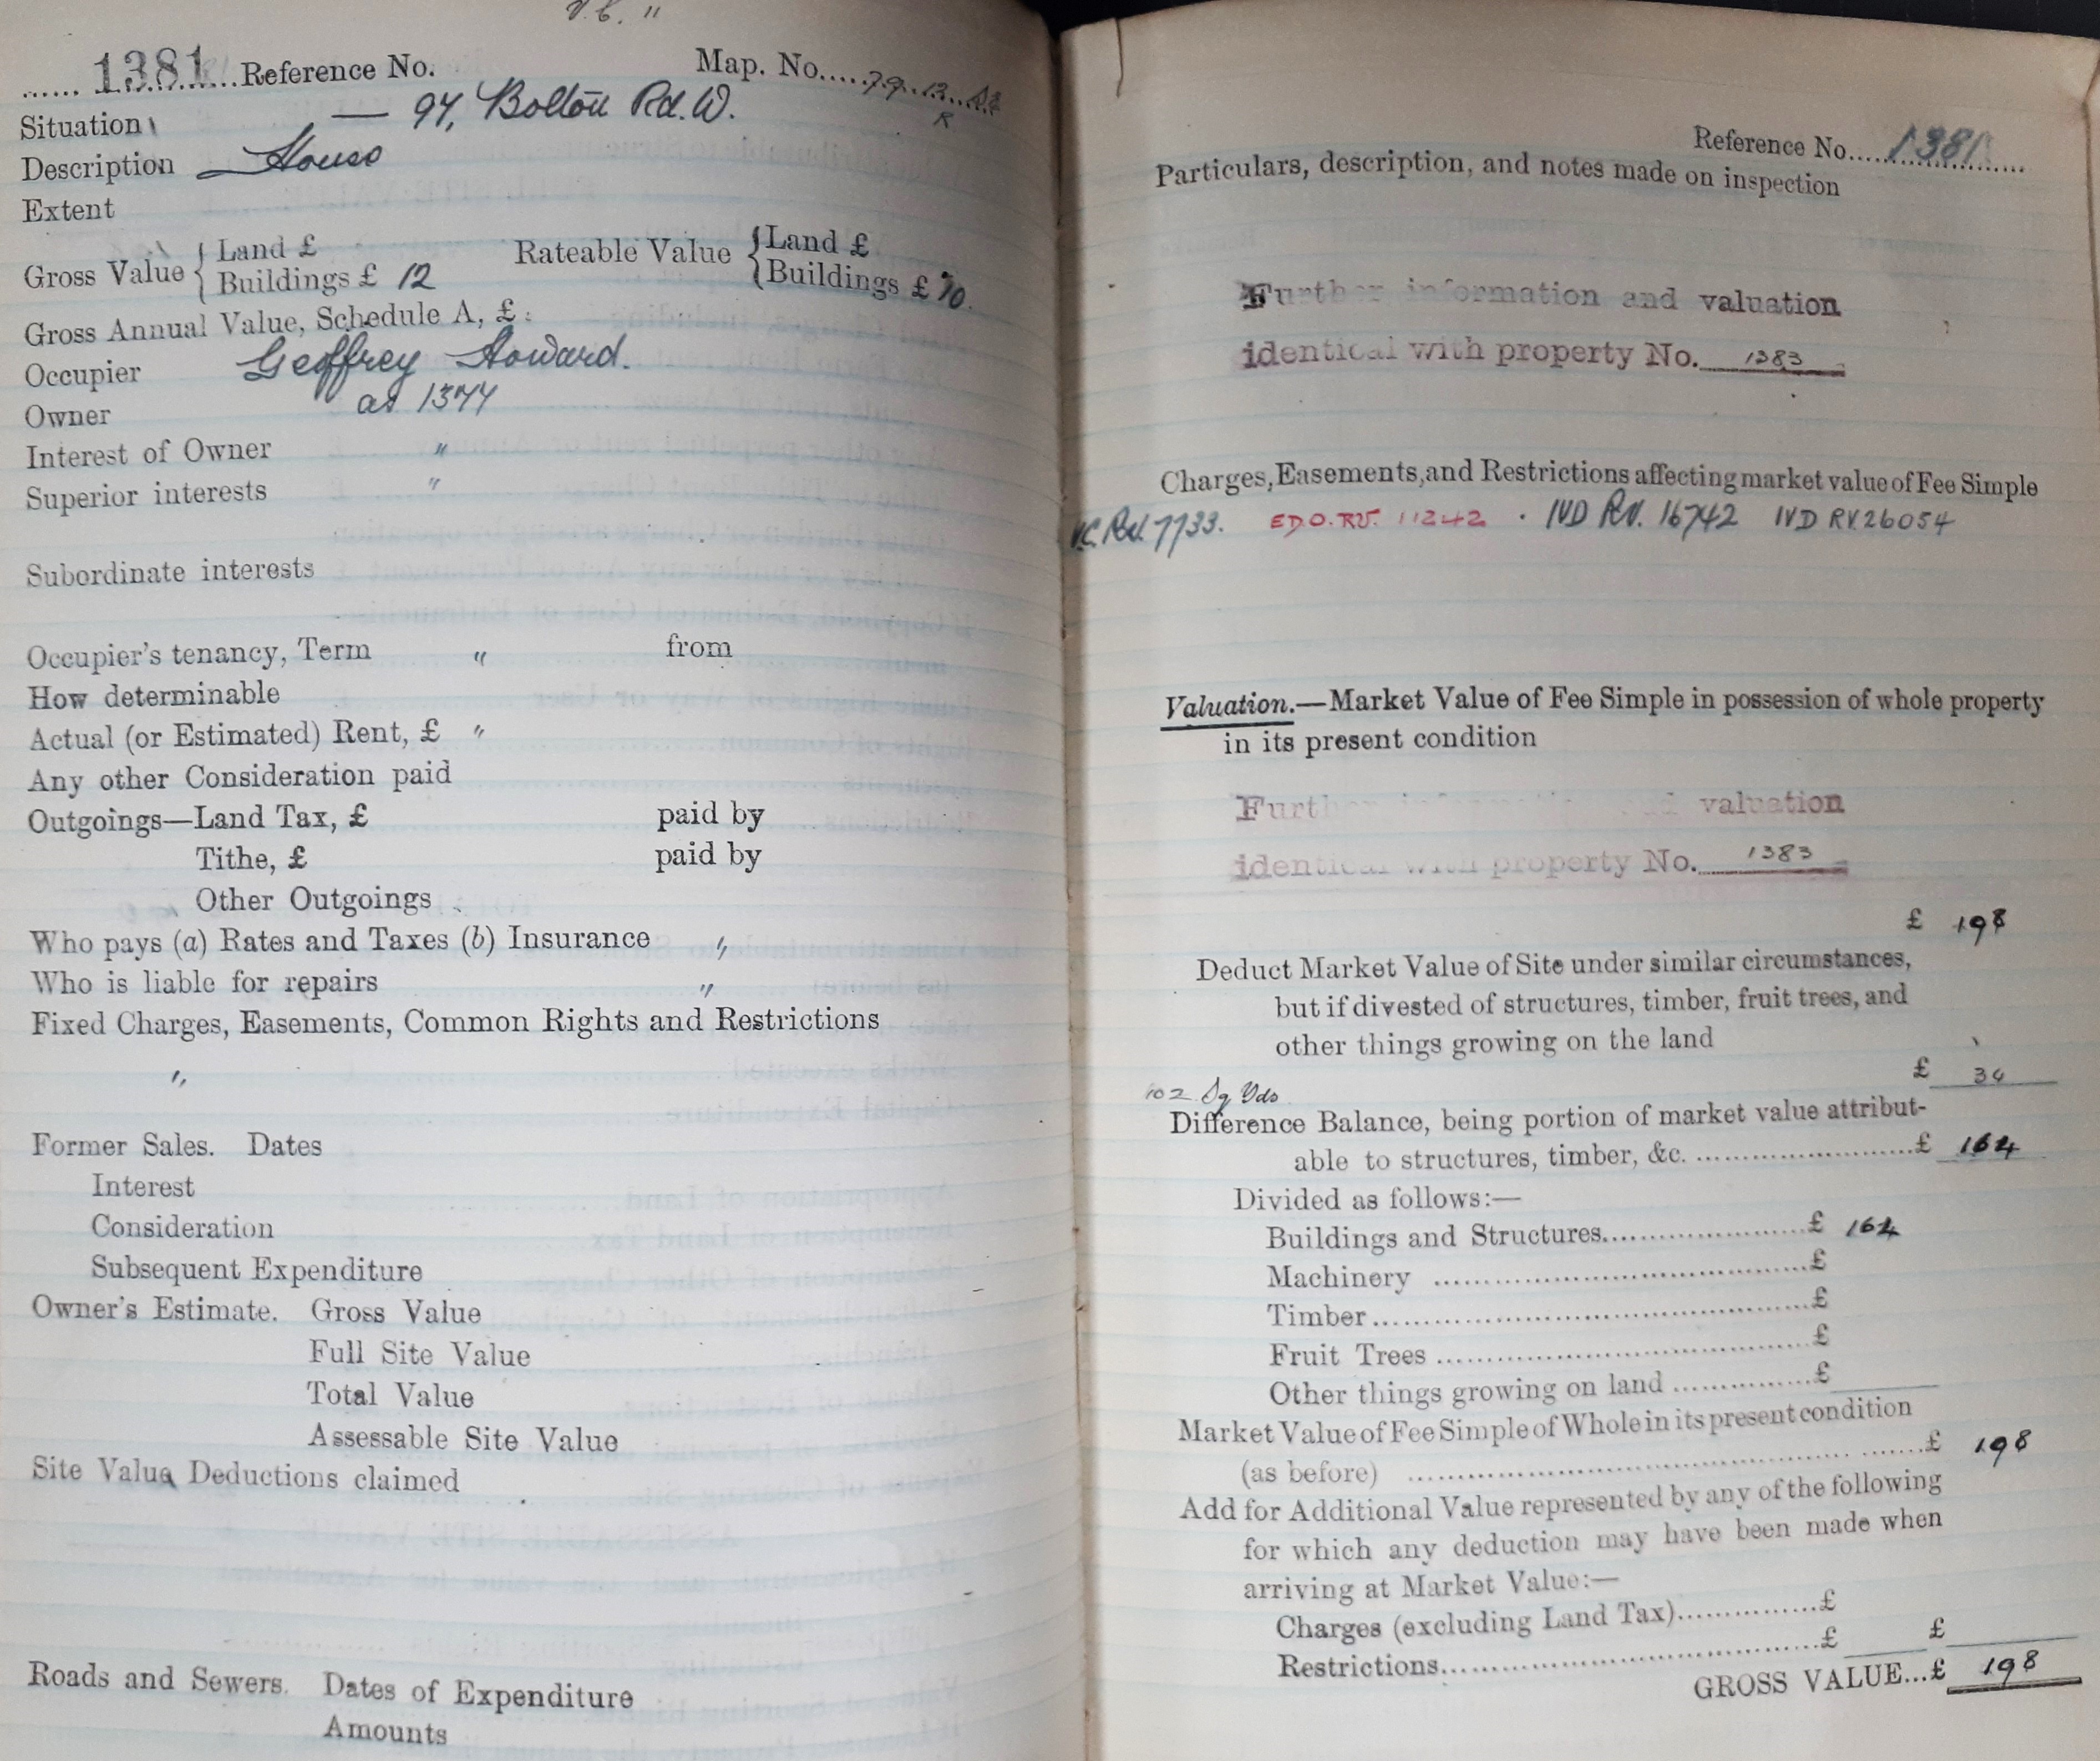 V.C. "
1381 Reference No. Map. No. 79.13.
R
Situation — 97, Bolton Rd. W.
Description House
Extent
Gross Value { Land £ Rateable Value { Land £
Buildings £ 12 Buildings £ 10.
Gross Annual Value, Schedule A, £
Occupier Geoffrey Howard.
Owner as 1377
Interest of Owner "
Superior interests "
Subordinate interests
Occupier's tenancy, Term " from
How determinable
Actual (or Estimated) Rent, £ "
Any other Consideration paid
Outgoings—Land Tax, £ paid by
Tithe, £ paid by
Other Outgoings
Who pays (a) Rates and Taxes (b) Insurance "
Who is liable for repairs "
Fixed Charges, Easements, Common Rights and Restrictions
"
Former Sales. Dates
Interest
Consideration
Subsequent Expenditure
Owner's Estimate. Gross Value
Full Site Value
Total Value
Assessable Site Value
Site Value Deductions claimed
Roads and Sewers. Dates of Expenditure
Amounts
Reference No. 1381
Particulars, description, and notes made on inspection
Further information and valuation
identical with property No. 1383
Charges, Easements, and Restrictions affecting market value of Fee Simple
V.C. Rd. 7733. EDO. RV. 11242 . IVD RV. 16742 IVD RV. 26054
Valuation.—Market Value of Fee Simple in possession of whole property
in its present condition
Further information and valuation
identical with property No. 1383
£ 198
Deduct Market Value of Site under similar circumstances,
but if divested of structures, timber, fruit trees, and
other things growing on the land
£ 34
102 Sq Yds
Difference Balance, being portion of market value attribut-
able to structures, timber, &c. £ 164
Divided as follows:—
Buildings and Structures £ 164
Machinery £
Timber £
Fruit Trees £
Other things growing on land £
Market Value of Fee Simple of Whole in its present condition
(as before) £ 198
Add for Additional Value represented by any of the following
for which any deduction may have been made when
arriving at Market Value:—
Charges (excluding Land Tax) £
Restrictions £ £
GROSS VALUE...£ 198